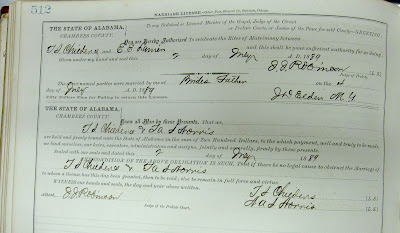 512
MARRIAGE LICENSE
THE STATE OF ALABAMA, To any Ordained or Licensed Minister of the Gospel, Judge of the Circuit
CHAMBERS COUNTY. or Probate Court, or Justice of the Peace for said County—GREETING:
You are Hereby Authorized to celebrate the Rites of Matrimony between
T J Chiders and E E and this shall be your sufficient authority for so doing
Given under my hand and seal this day of May A. D. 1889
J J Robinson [L. S.]
Judge of Probate
The above named parties were married by me at Brides Father on the
day of May A. D. 1889
Jno Elder M G
THE STATE OF ALABAMA,
CHAMBERS COUNTY. Know all Men by these Presents, That we,
T J Chiders & S Norris
are held and firmly bound unto the State of Alabama in the sum of Two Hundred Dollars, to the which payment, well and truly to be made,
we bind ourselves, our heirs, executors, administrators and assigns, jointly and severally, firmly by these presents.
Sealed with our seals and dated this day of May 1889
THE CONDITION OF THE ABOVE OBLIGATION IS SUCH, That if there be no legal cause to obstruct the marriage of
T J Chiders & S Norris
to whom a license has this day been granted, then to be void; else to remain in full force and virtue.
WITNESS our hands and seals, the day and year above written.
Attest: J J Robinson T J Chiders [L. S.]
Judge of the Probate Court. S Norris [L. S.]